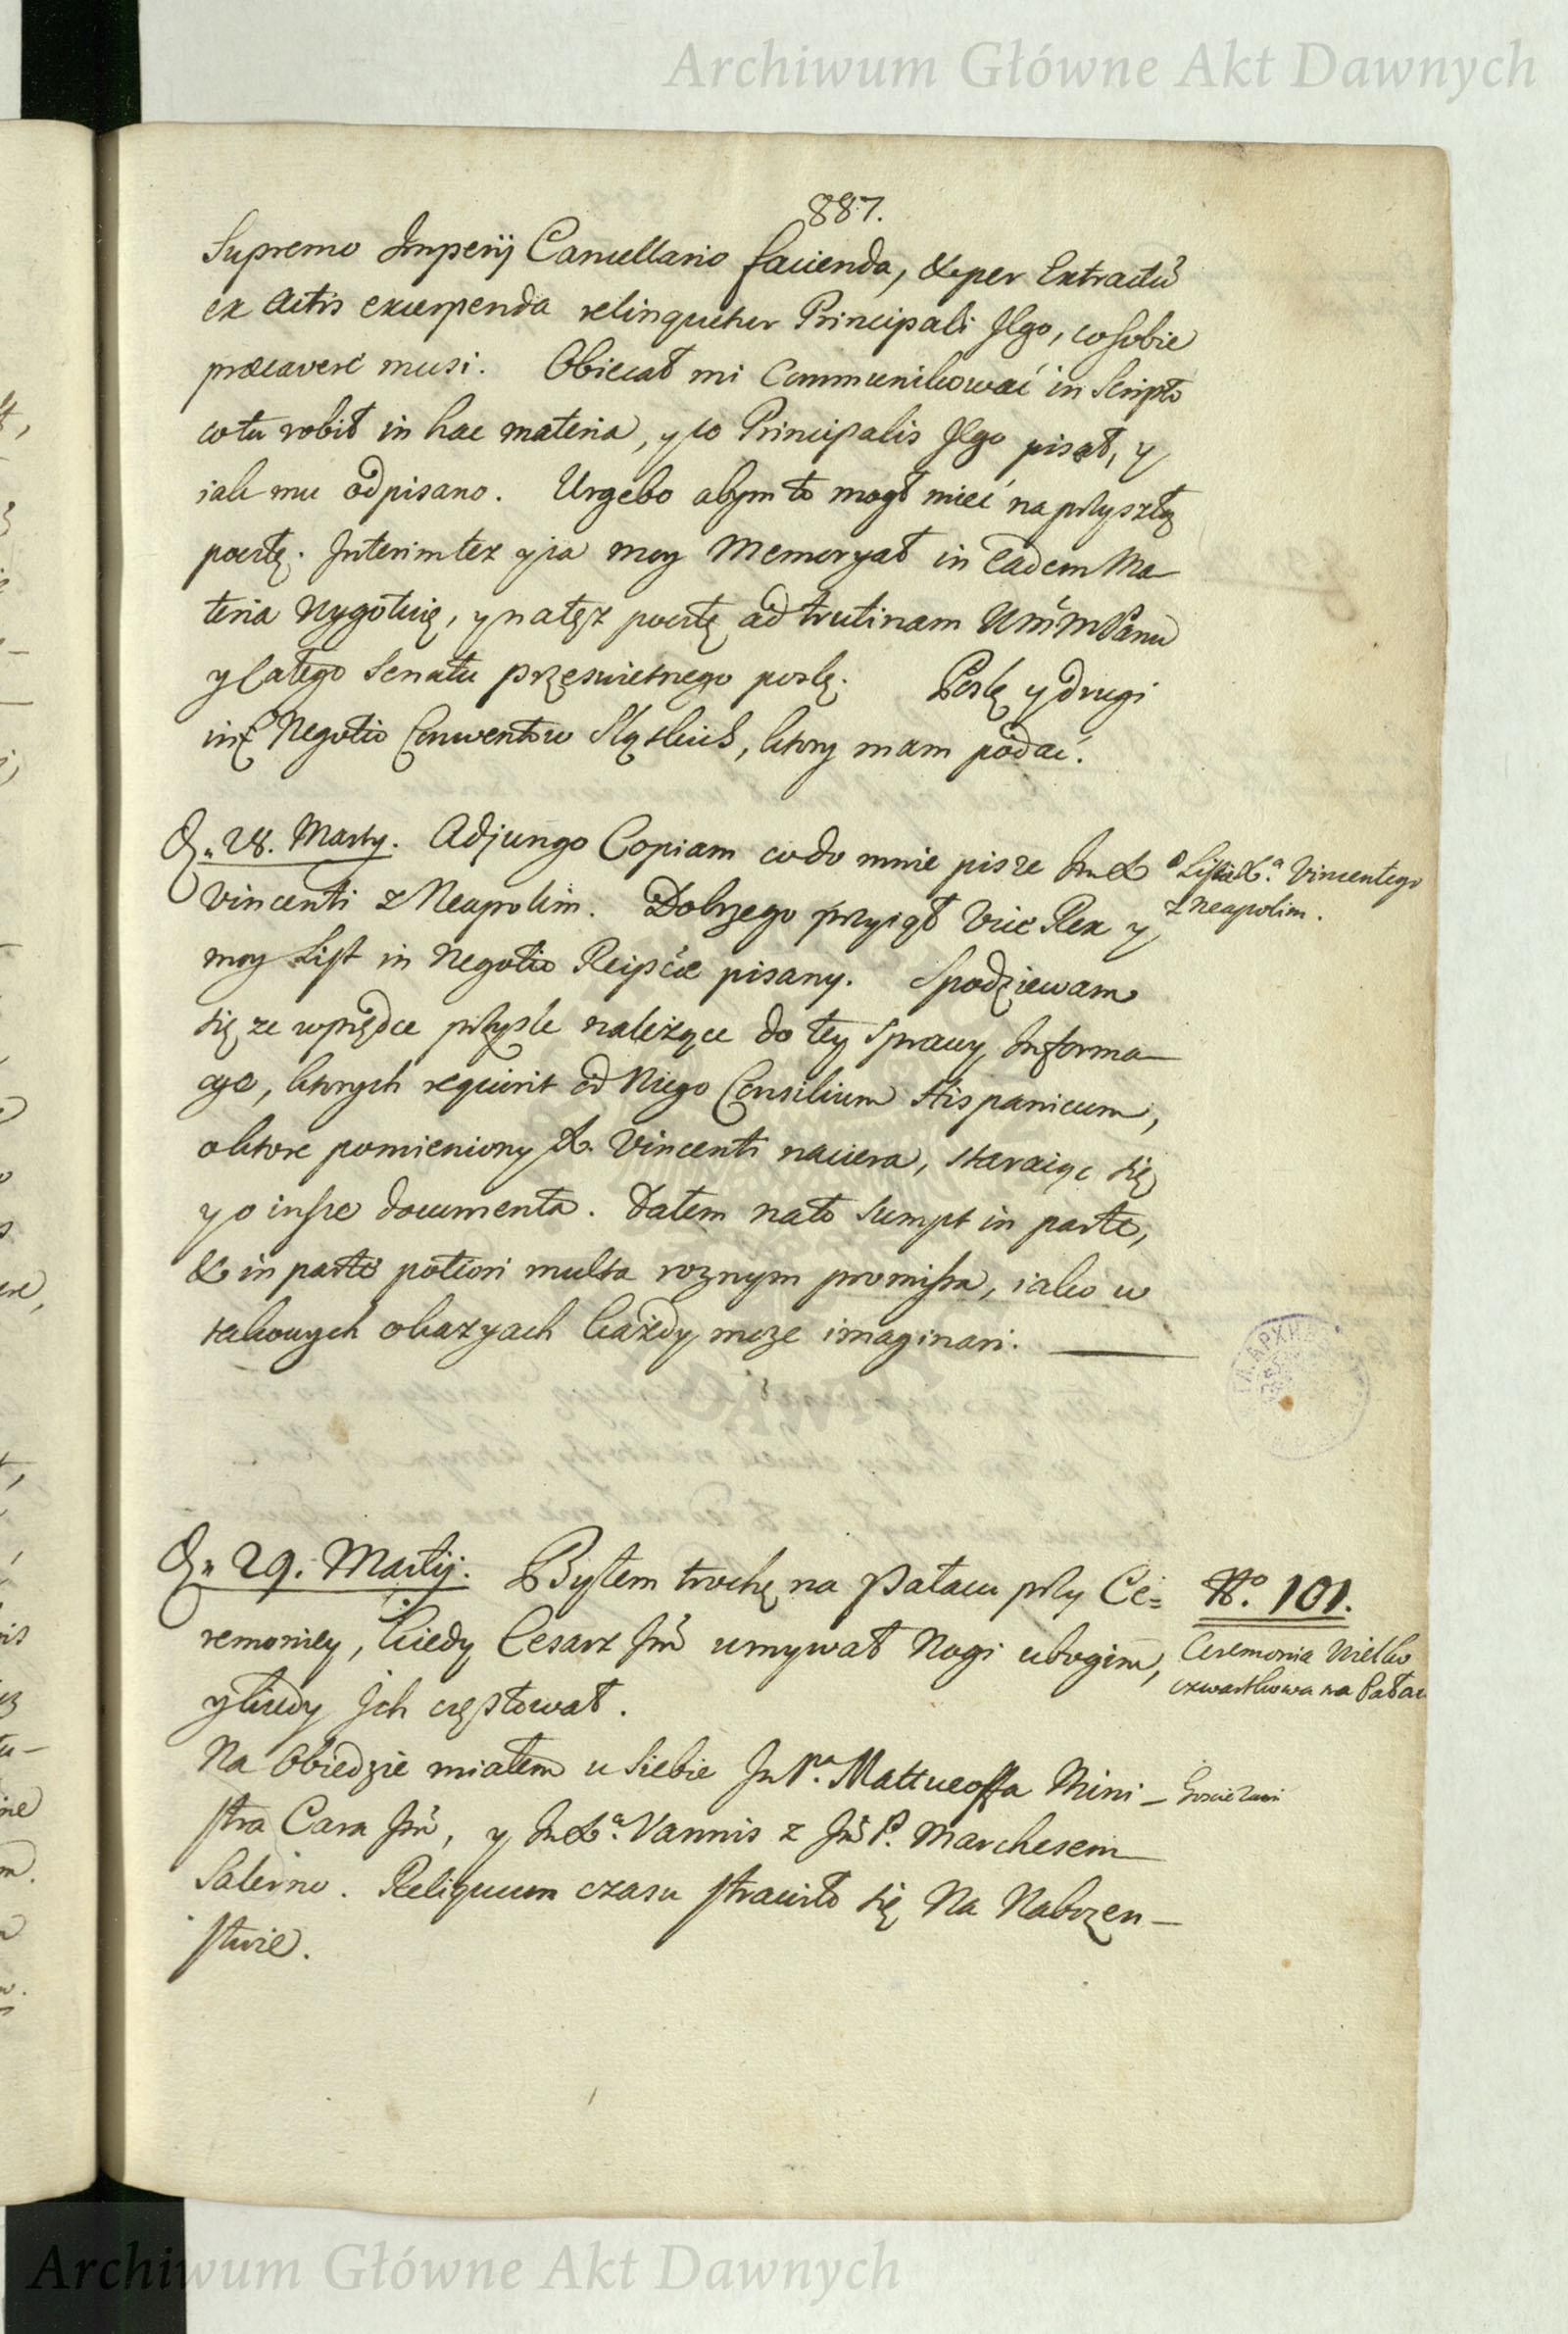 Archiwum Główne Akt Dawnych
887.
Supremo Imperij Cancellario facienda, & per Extractũ
ex Actis excerpenda relinquetur Principali Jego, co sobie
praecavere musi. Obiecał mi Communikować in Scripto
co tu robił in hac materia, y co Principalis Jego pisał, y
iak mu odpisano. Urgebo abym to mogł mieć na przyszłą
pocztę. Interim też y ja moy Memoryał in eadem Ma-
teria Wygotuię, y na tęż pocztę ad trutinam WMM Panu
y całego Senatu przeswietnego poslę. Poslę y drugi
in Negotio Conwentow Sląskich, ktory mam podać.
D. 28. Martij. Adjungo Copiam co do mnie pisze Im X
Vincenti z Neapolim. Dobrze go przyiął Vice Rex y
moy List in Negotio Reipcae pisany. Spodziewam
się ze wprędce przysle należące do tey Sprawy Informa-
cye, ktorych requirit od Niego Consilium Hispanicum,
o ktore pomieniony X. Vincenti naciera, staraiąc się
y o insze documenta. Dałem na to sumpt in parte,
& in parte potiori multa roznym promissa, iako w
takowych okazyach każdy moze imaginari.
List X.ª Vincentego
z Neapolim.
D. 29. Martij. Byłem trochę na Pałacu przy Ce=
remoniey, kiedy Cesarz Jmć umywał Nogi ubogim,
y kiedy Ich częstował.
Nº. 101.
Ceremonia Wielko
czwartkowa na Pałacu
Na Obiedzie miałem u Siebie Im P.ª Mattueoffa Mini-
stra Cara Jmć, y Im X.ª Vannis z Jmć P. Marchesem
Salerno. Reliquum czasu strawiło się Na Nabożen-
stwie.
Archiwum Główne Akt Dawnych